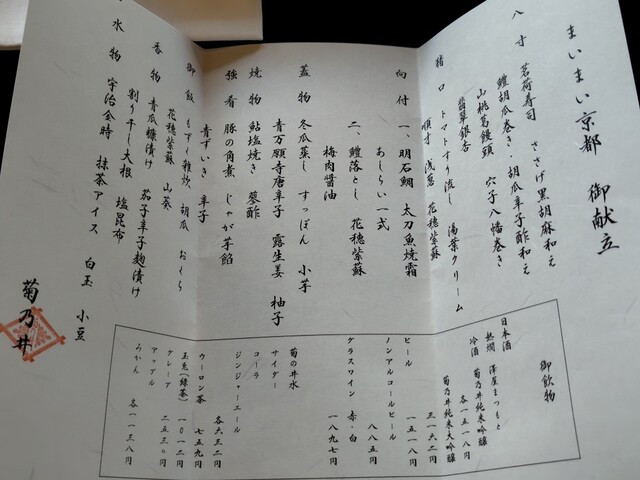 まいまい京都　御献立
八寸　茗荷寿司　ささげ黒胡麻和え
鱧胡瓜巻き・胡瓜辛子酢和え
山桃葛饅頭　穴子八幡巻き
翡翠銀杏
猪口　トマトすり流し　湯葉クリーム
順才　浅葱　花穂紫蘇
向付　一、明石鯛　太刀魚焼霜
あしらい一式
二、鱧落とし　花穂紫蘇
梅肉醤油
蓋物　冬瓜蒸し　すっぽん　小芋
青万願寺唐辛子　露生姜　柚子
焼物　鮎塩焼き　蓼酢
強肴　豚の角煮　じゃが芋餡
青ずいき　辛子
御飯　もずく雑炊　胡瓜　おくら
花穂紫蘇　山葵
香物　青瓜糠漬け　茄子辛子麹漬け
割り干し大根　塩昆布
水物　宇治金時　抹茶アイス　白玉　小豆
菊乃井
御飲物
日本酒
熱燗　澤屋まつもと
冷酒　菊乃井純米吟醸
各一五一八円
菊乃井純米大吟醸
三一六二円
ビール　一五一八円
ノンアルコールビール
八八五円
グラスワイン　赤・白
一八九七円
菊の井水
サイダー
コーラ
ジンジャーエール
各六三二円
ウーロン茶　七五九円
玉兎(緑茶)　一〇一二円
グレープ　二五三〇円
アップル
みかん　各一一三八円